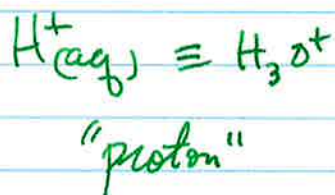 H⁺(aq) ≡ H₃O⁺
"proton"